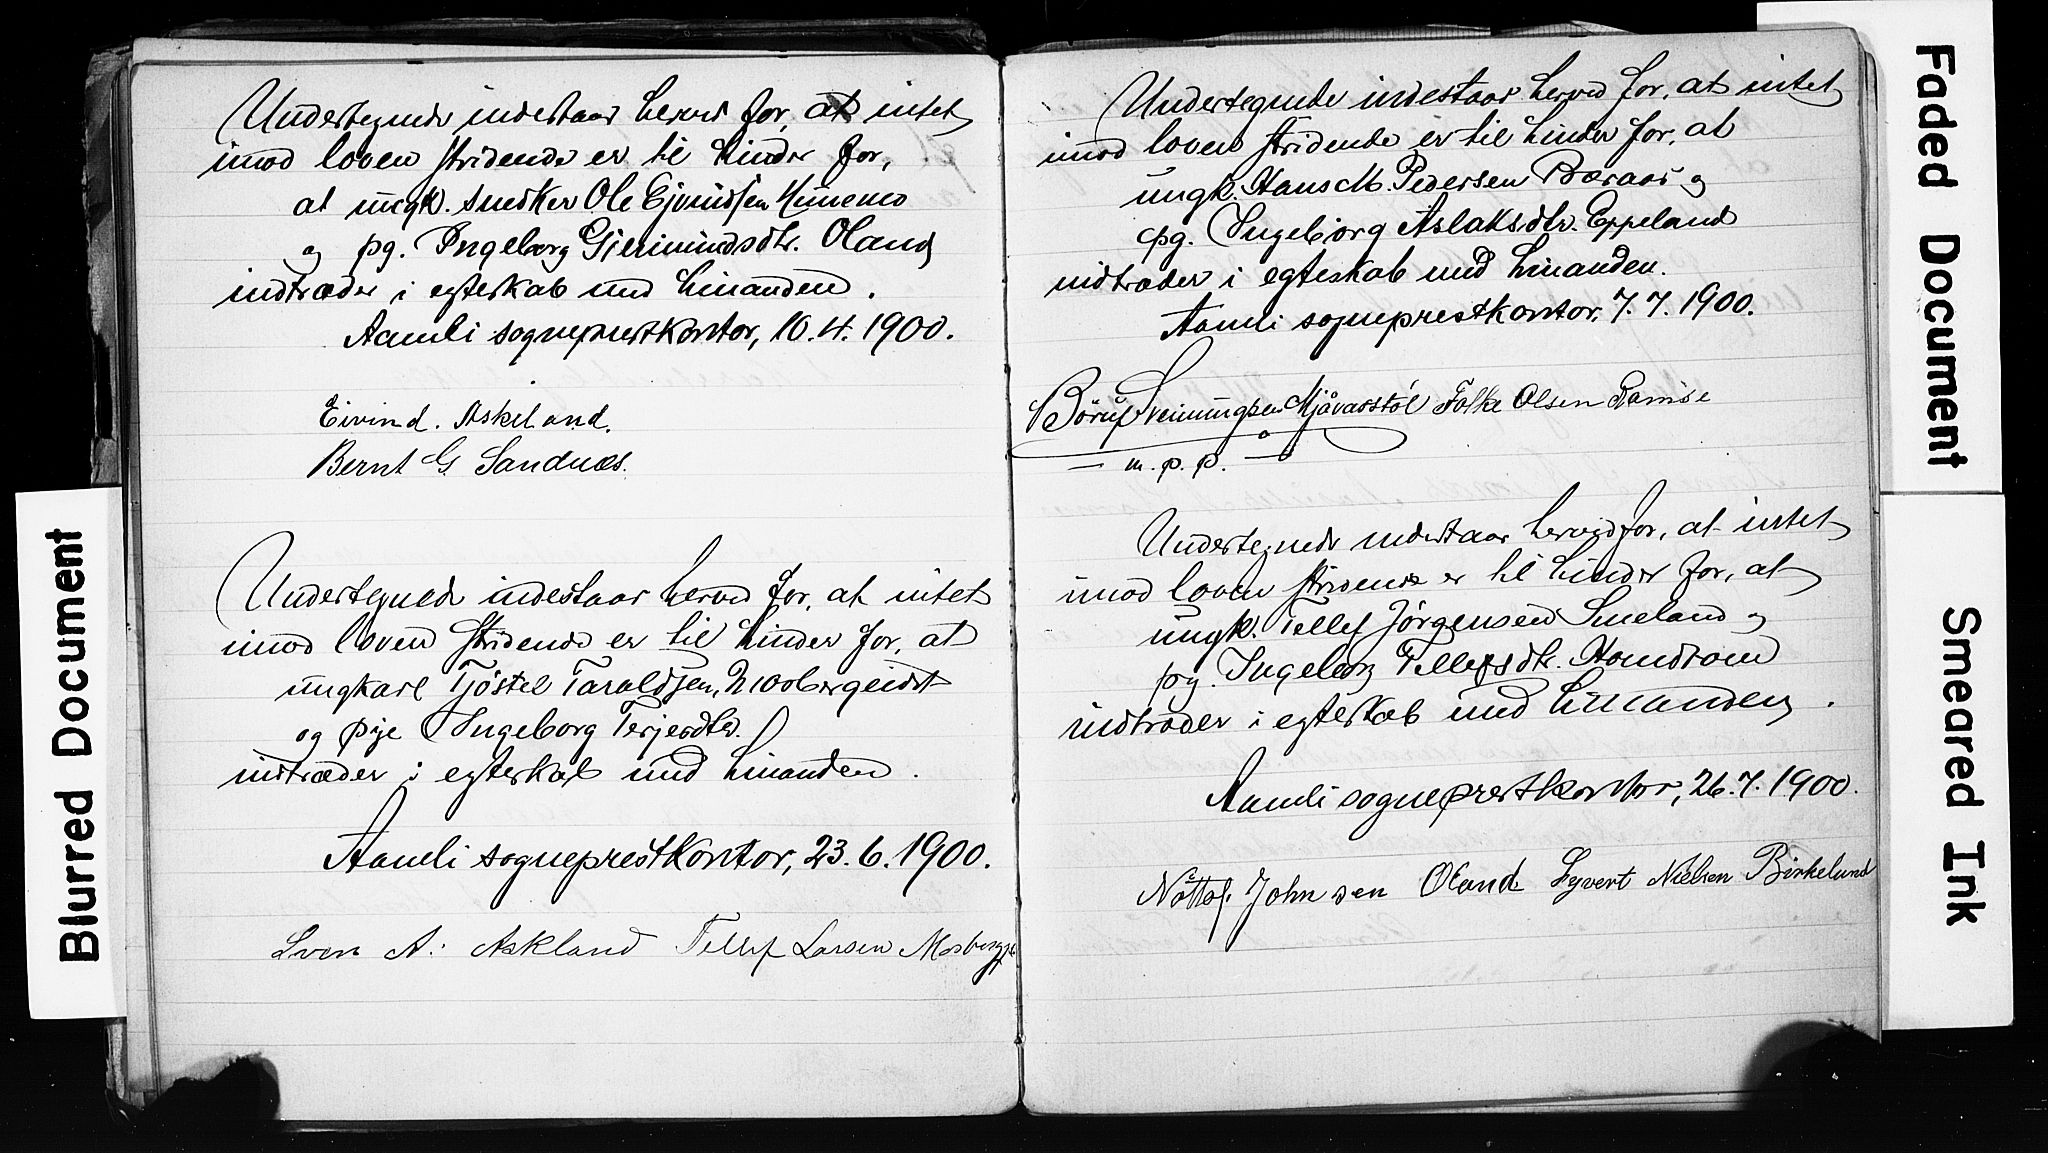 Undertegnede indestaar herved for, at intet
imod loven stridende er til hinder for,
at ungk. snedker Ole Ejvindsen
og pg. Ingeborg Gjermundsdtr. Oland
indtræder i egteskab med hinanden.
Aamli sogneprestkontor, 10.4.1900.
Eivind. Askeland.
Bernt G Sandnæs.
Undertegnede indestaar herved for, at intet
imod loven stridende er til hinder for, at
ungkarl Tjøstel Taraldsen,
og pije Ingeborg Terjesdtr.
indtræder i egteskab med hinanden.
Aamli sogneprestkontor, 23.6.1900.
Sven A: Askland Tellef Larsen
Undertegnede indestaar herved for, at intet
imod loven stridende er til hinder for, at
ungk. Hans M. Pedersen Baraas og
pg. Ingeborg Aslaksdtr. Eppeland
indtræder i egteskab med hinanden.
Aamli sogneprestkontor, 7.7.1900.
Børuf Veiningsen Mjåvasstøl Folke Olsen Ramse
— m. p. p. —
Undertegnede indestaar herved for, at intet
imod loven stridende er til hinder for, at
ungk. Tellef Jørgensen Smeland og
pg. Ingeborg Tellefsdtr. Homdrom
indtræder i egteskab med hinanden.
Aamli sogneprestkontor, 26.7.1900.
Nottof. Johnsen Oland Syvert Nielsen Birkelund
Blurred Document
Faded Document
Smeared Ink